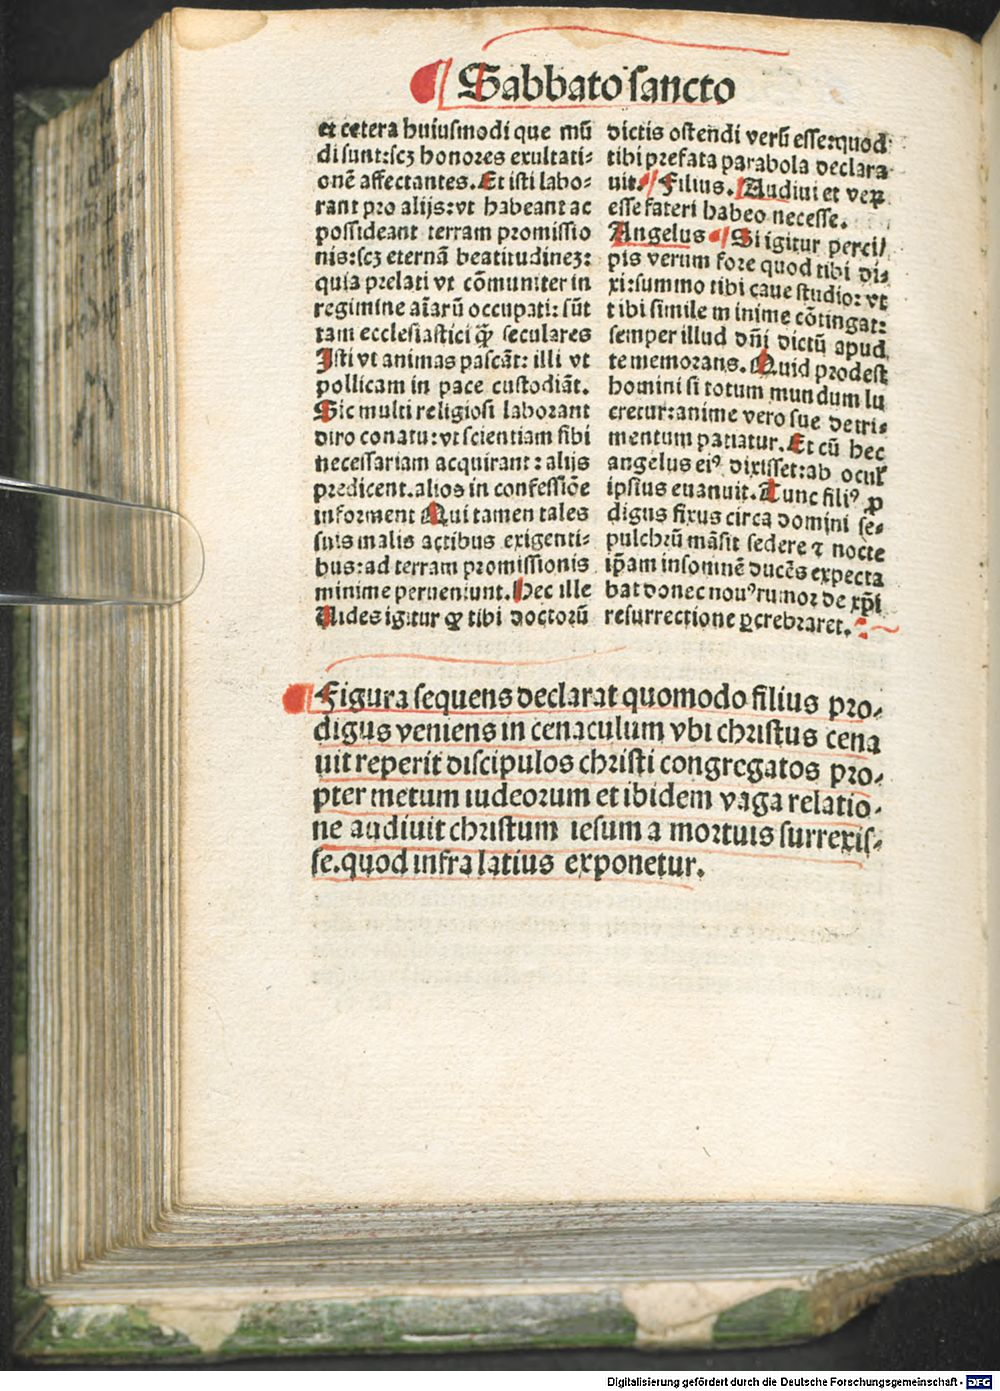 Sabbato sancto
et cetera huiusmodi que mũ
di sunt:scꝫ honores exultati⸗
onē affectantes. Et isti labo⸗
rant pro alijs: vt habeant ac
possideant terram promissio
nis: scꝫ eternā beatitudineꝫ:
quia prelati vt cōmuniter in
regimine aĩarũ occupati: sũt
tam ecclesiastici qꝫ̃ seculares
Isti vt animas pascãt: illi vt
pollicam in pace custodiãt.
Sic multi religiosi laborant
diro conatu: vt scientiam sibi
necessariam acquirant: alijs
predicent. alios in confessiōe
informent Qui tamen tales
suis malis actibus exigenti⸗
bus: ad terram promissionis
minime perueniunt. Hec ille
Uides igitur ꝙ tibi doctorũ
dictis ostendi verũ esse: quod
tibi prefata parabola declara
uit. Filius. Audiui et veꝝ
esse fateri habeo necesse.
Angelus Si igitur perci/
pis verum fore quod tibi di⸗
xi: summo tibi caue studio: vt
tibi simile minime cōtingat:
semper illud dñi dictũ apud
te memorans. Quid prodest
homini si totum mundum lu
cretur: anime vero sue detri⸗
mentum patiatur. Et cũ hec
angelus eiꝰ dixisset: ab ocul̕
ipsius euanuit. Tunc filiꝰ ꝓ
digus fixus circa domini se⸗
pulchrũ mãsit sedere ⁊ nocte
ip̃am insomnē ducēs expecta
bat donec nouꝰ rumor de xp̃i
resurrectione ꝑcrebraret.
Figura sequens declarat quomodo filius pro⸗
digus veniens in cenaculum vbi christus cena
uit reperit discipulos christi congregatos pro⸗
pter metum iudeorum et ibidem vaga relatio⸗
ne audiuit christum iesum a mortuis surrexis⸗
se. quod infra latius exponetur.
Digitalisierung gefördert durch die Deutsche Forschungsgemeinschaft - DFG